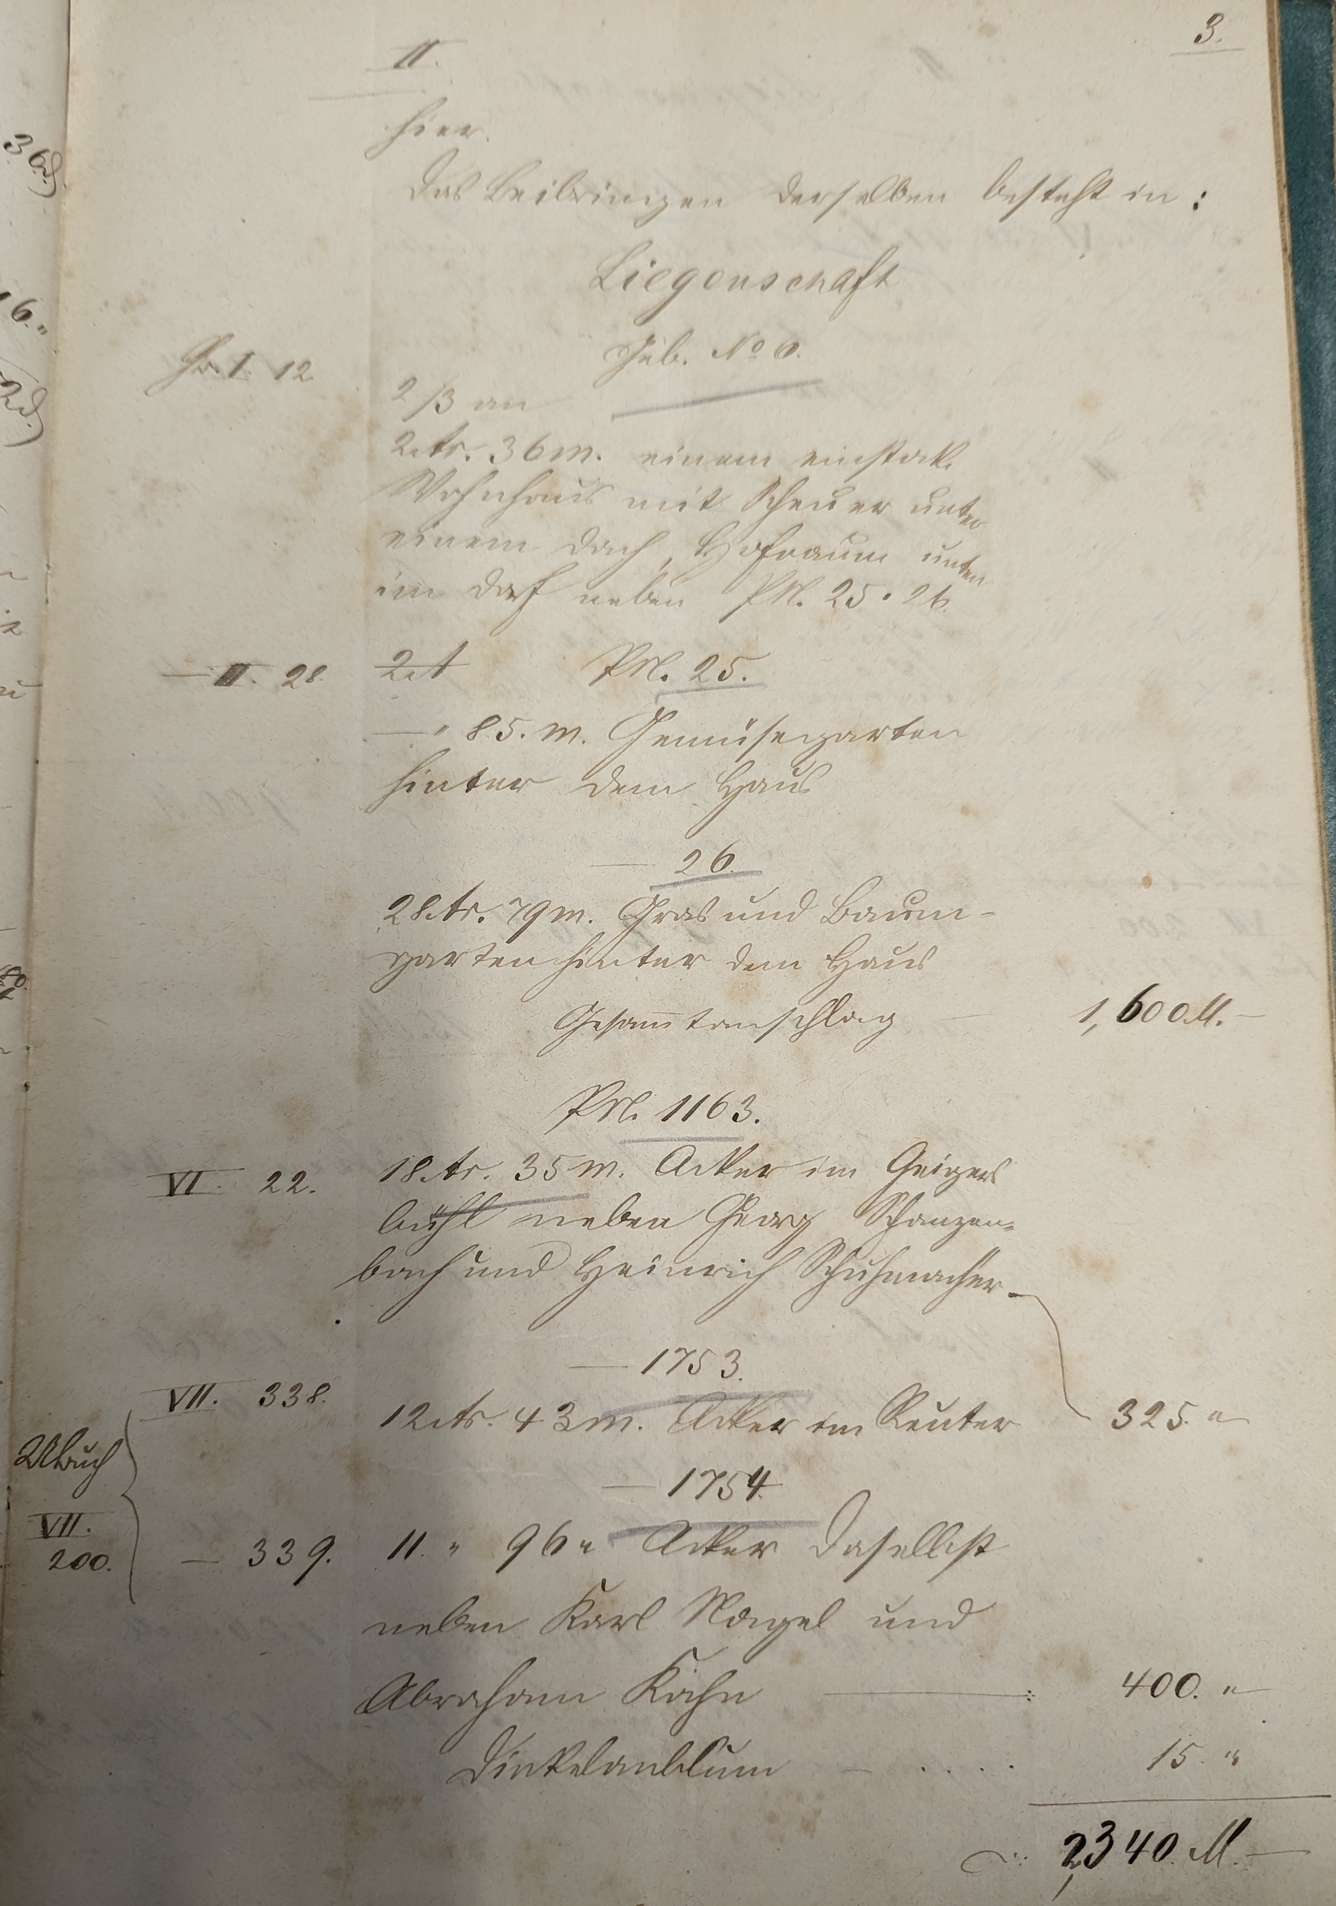 3.
II.
hier.
Das Beibringen derselben besteht in:
Liegenschaft
Geb. No 6.
I. 12
2/3 an
2 Ar. 36 m. einem einstock.
Wohnhaus mit Scheuer unter
einem Dach, Hofraum unten
im Dorf neben PN. 25. 26.
— II. 28. PN. 25.
— " 85. m. Gemüsegarten
hinter dem Haus
— 26.
28 Ar. 79 m. Gras und Baum-
garten hinter dem Haus
Gesammtanschlag — 1,600 M. —
PN. 1163.
VI. 22. 18 Ar. 35 m. Acker im Geigers
bühl neben Georg Schanzen-
bach und Heinrich Schuhmacher.
— 1753.
VII. 338. 12 Ar. 43 m. Acker im Reuter 325. "
— 1754.
VII.
200. — 339. 11. " 96 " Acker daselbst
neben Karl Nagel und
Abraham Kahn — : 400. "
Dinkelanblum — . . . . 15. "
2,340 M. —